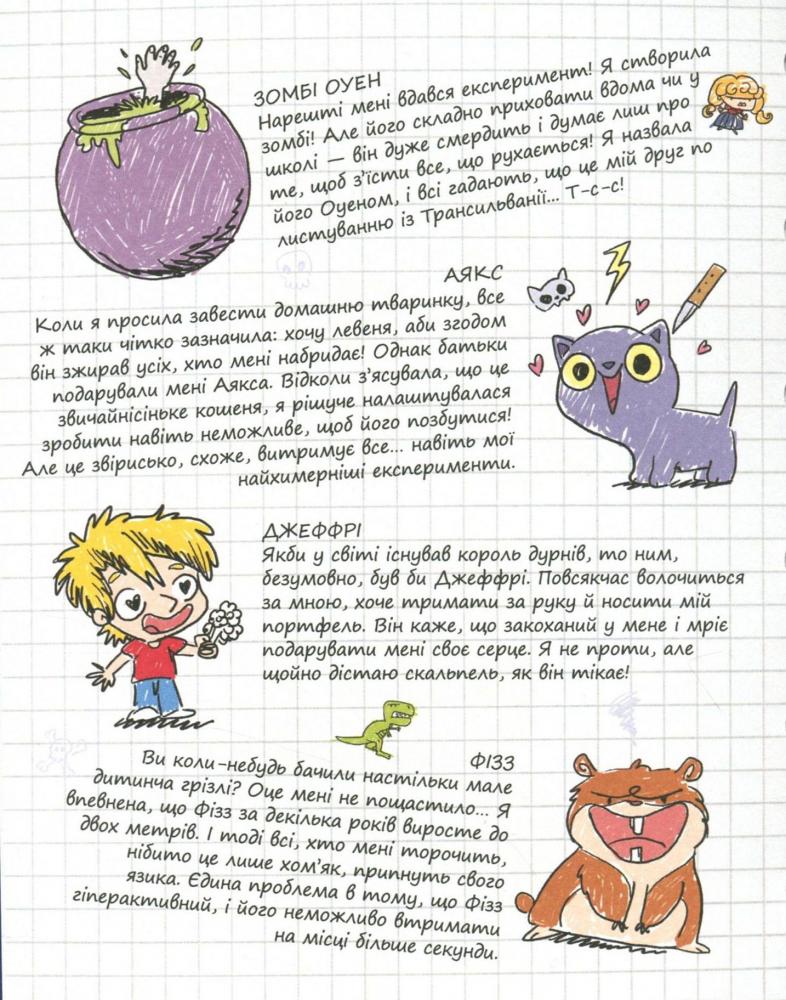 ЗОМБІ ОУЕН
Нарешті мені вдався експеримент! Я створила
зомбі! Але його складно приховати вдома чи у
школі — він дуже смердить і думає лиш про
те, щоб з’їсти все, що рухається! Я назвала
його Оуеном, і всі гадають, що це мій друг по
листуванню із Трансильванії... Т-с-с!
АЯКС
Коли я просила завести домашню тваринку, все
ж таки чітко зазначила: хочу левеня, аби згодом
він зжирав усіх, хто мені набридає! Однак батьки
подарували мені Аякса. Відколи з’ясувала, що це
звичайнісіньке кошеня, я рішуче налаштувалася
зробити навіть неможливе, щоб його позбутися!
Але це звірисько, схоже, витримує все... навіть мої
найхимерніші експерименти.
ДЖЕФФРІ
Якби у світі існував король дурнів, то ним,
безумовно, був би Джеффрі. Повсякчас волочиться
за мною, хоче тримати за руку й носити мій
портфель. Він каже, що закоханий у мене і мріє
подарувати мені своє серце. Я не проти, але
щойно дістаю скальпель, як він тікає!
ФІЗЗ
Ви коли-небудь бачили настільки мале
дитинча грізлі? Оце мені не пощастило... Я
впевнена, що Фізз за декілька років виросте до
двох метрів. І тоді всі, хто мені торочить,
нібито це лише хом’як, припнуть свого
язика. Єдина проблема в тому, що Фізз
гіперактивний, і його неможливо втримати
на місці більше секунди.